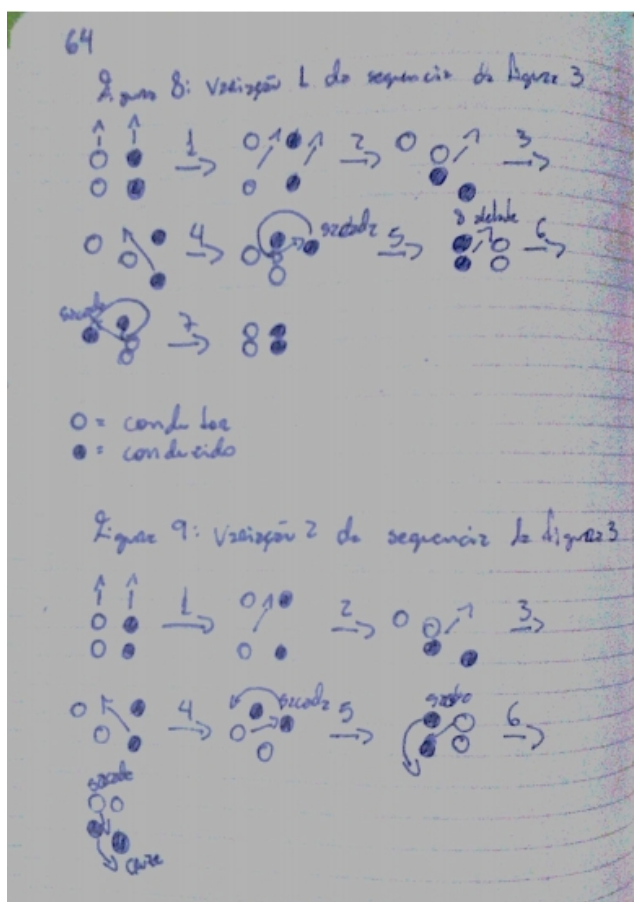 64
Figura 8: Variação 1 da sequencia da figura 3
1 2 3
4 sacada 5 6
sacada 7
= condutor
= conduzido
Figura 9: Variação 2 da sequencia da figura 3
1 2 3
4 sacada 5 6
sacada
cruze